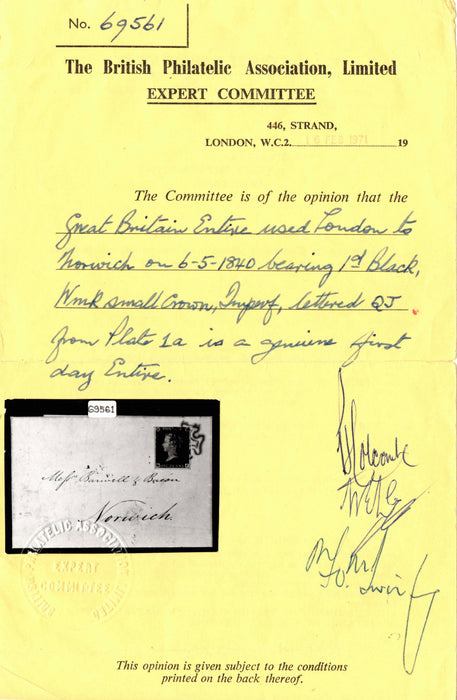 No. 69561
The British Philatelic Association, Limited
EXPERT COMMITTEE
446, STRAND,
LONDON, W.C.2. 16 FEB 1971 19
The Committee is of the opinion that the
Great Britain Entire used London to
Norwich on 6-5-1840 bearing 1d Black,
Wmk small Crown, Imperf, lettered QJ
from Plate 1a is a genuine first
day Entire.
69561
Messrs Barwell &
Norwich.
Holcombe
PHILATELIC ASSOCIATION
EXPERT
COMMITTEE
This opinion is given subject to the conditions
printed on the back thereof.